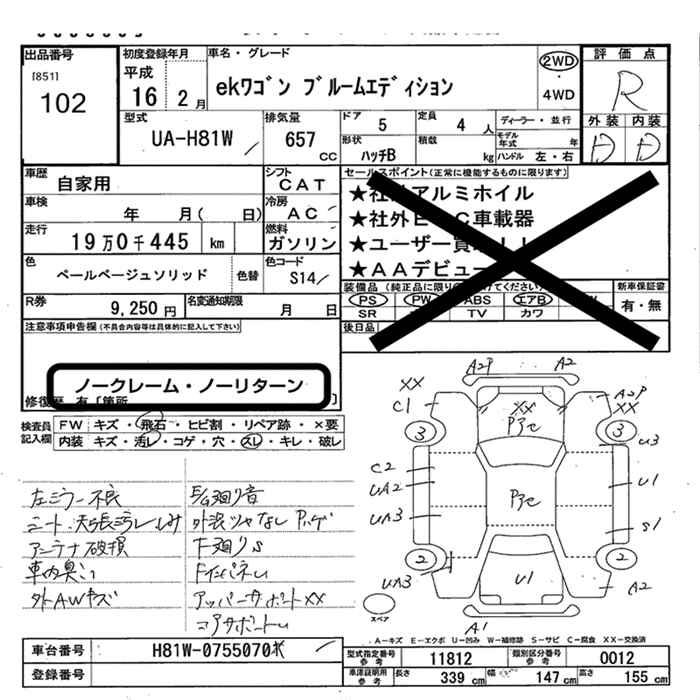 出品番号 初度登録年月 車名・グレード 評価点
[851] 平成 2WD
102 16 年 2 月 ekワゴン ブルームエディション ・ R
4WD
型式 排気量 ドア 5 定員 4 人 ディーラー・並行 外装 内装
UA-H81W 657 cc 形状 ハッチB 積載 kg モデル年式 年 D D
ハンドル 左・右
車歴 自家用 シフト CAT セールスポイント(正常に機能するものに限ります)
車検 年 月( 日) 冷房 AC ★社外アルミホイル
走行 19万0千445 km 燃料 ガソリン ★社外E C車載器
★ユーザー買
色 ペールベージュソリッド 色替 色コード S14 ★AAデビュー
R券 9,250円 名変通知期限 月 日 装備品(純正品に限り てください) 新車保証書
PS PW ABS エアB W 有・無
SR TV カワ
注意事項申告欄(不具合内容等は具体的に記入して下さい) 後日品
ノークレーム・ノーリターン
修復歴 有〔箇所 〕
検査員記入欄 FW キズ・飛石・ヒビ割・リペア跡・×要
内装 キズ・汚レ・コゲ・穴・スレ・キレ・破レ
A2P A2
XX A2P
C1 XX XX
3 P3C 3
U3
C2
UA2 P3C U1
UA3 S1
2 2
UA3 U1 A2
A1
スペア
左ミラー不良 外装ツヤなし
シート・天張ヨゴレ しみ 下廻りS
アンテナ破損 FインパネU
車内臭い アッパーサポートXX
外AWキズ コアサポートU
A-キズ E-エクボ U-凹み W-補修跡 S-サビ C-腐食 XX-交換済
車台番号 H81W-0755070 型式指定番号 参考 11812 類別区分番号 参考 0012
登録番号 車庫証明用 参考 長さ 339 cm 幅 147 cm 高さ 155 cm